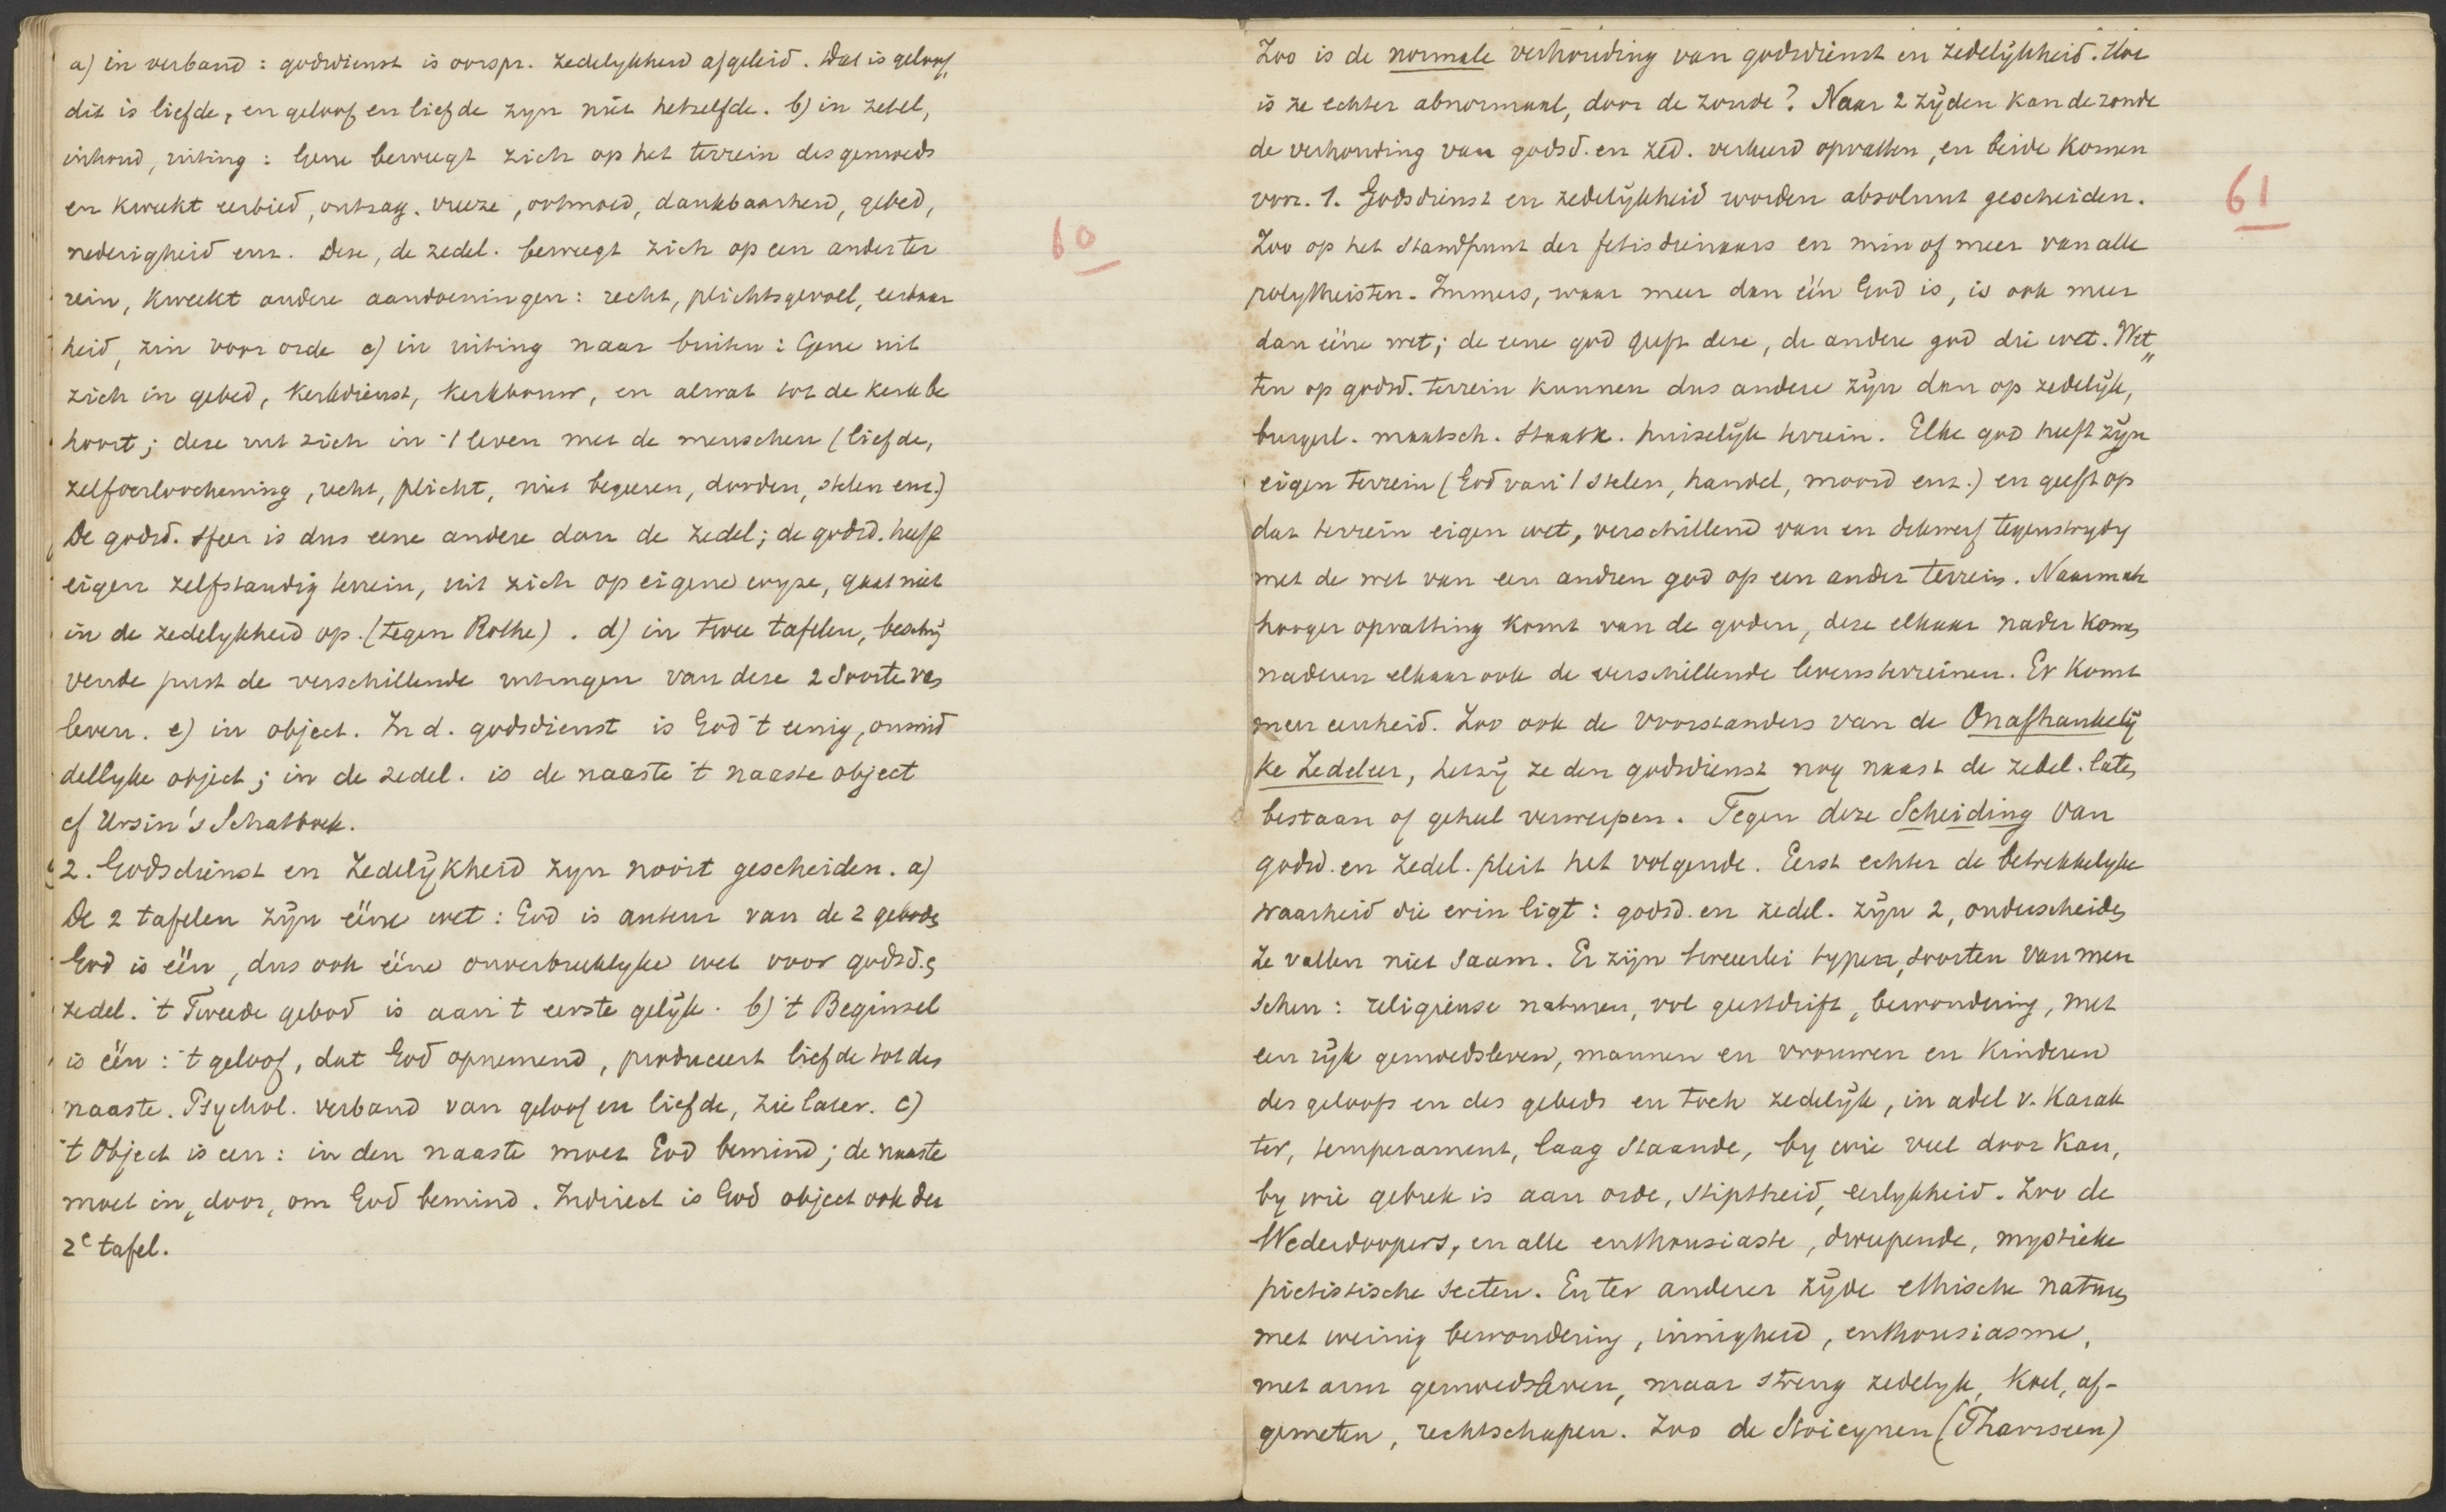 a) in verband : godsdienst is oorspr. zedelykheid afgeleid. Dat is geloof,
dit is liefde, en geloof en liefde zyn niet hetzelfde. b) in zetel,
inhoud, uiting : Gene beweegt zich op het terrein des gemoeds
en kweekt eerbied, ontzag. vreeze, ootmoed, dankbaarheid, gebed,
nederigheid enz. Deze, de zedel. beweegt zich op een ander ter
rein, kweekt andere aandoeningen : recht, plichtsgevoel, eerbaar
heid, zin voor orde c) in uiting naar buiten : Gene uit
zich in gebed, kerkdienst, kerkbouw, en alwat tot de kerk be
hoort; deze uit zich in 't leven met de menschen (liefde,
zelfverloochening, recht, plicht, niet begeeren, dooden, stelen enz.)
De godsd. sfeer is dus eene andere dan de zedel; de godsd. heeft
eigen zelfstandig terrein, uit zich op eigene wyze, gaat niet
in de zedelykheid op. (tegen Rothe). d) in twee tafelen, beschrij
vende juist de verschillende uitingen van deze 2 soorten van
leven. e) in object. In d. godsdienst is God 't eenig, onmid
dellyke object; in de zedel. is de naaste 't naaste object
cf Ursin's Schatboek.
2. Godsdienst en Zedelÿkheid zyn nooit gescheiden. a)
De 2 tafelen zÿn ééne wet : God is auteur van de 2 geboden
God is één, dus ook ééne onverbreeklyke wet voor godsd. en
zedel. 't Tweede gebod is aan 't eerste gelÿk. b) 't Beginsel
is één : 't geloof, dat God opnemend, produceert liefde tot den
naaste. Psychol. verband van geloof en liefde, zie later. c)
't Object is een : in den naaste moet God bemind; de naaste
moet in, door, om God bemind. Indirect is God object ook der
2e tafel.
60
Zoo is de normale verhouding van godsdienst en zedelÿkheid. Hoe
is ze echter abnormaal, door de zonde? Naar 2 zÿden kan de zonde
de verhouding van godsd. en zed. verkeerd opvatten, en beide komen
voor. 1. Godsdienst en zedelÿkheid worden absoluut gescheiden.
Zoo op het standpunt der fetisdienaars en min of meer van alle
polytheisten. Immers, waar meer dan één God is, is ook meer
dan ééne wet; de eene god geeft deze, de andere god die wet. Wet„
ten op godsd. terrein kunnen dus andere zÿn dan op zedelÿk,
burgerl. maatsch. staatk. huiselÿk terrein. Elke god heeft zÿn
eigen terrein (God van 't stelen, handel, moord enz.) en geeft op
dat terrein eigen wet, verschillend van en dikwerf tegenstrydig
met de wet van een andren god op een ander terrein. Naarmate
hooger opvatting komt van de goden, deze elkaar nader komen
naderen elkaar ook de verschillende levensterreinen. Er komt
meer eenheid. Zoo ook de voorstanders van de Onafhankelÿ
ke Zedeleer, hetzÿ ze den godsdienst nog naast de zedel. laten
bestaan of geheel verwerpen. Tegen deze Scheiding van
godsd. en zedel. pleit het volgende. Eerst echter de betrekkelyke
waarheid die erin ligt : godsd. en zedel. zÿn 2, onderscheiden
Ze vallen niet saam. Er zijn tweeerlei typen, soorten van men
schen : religieuse naturen, vol geestdrift, bewondering, met
een ryk gemoedsleven, mannen en vrouwen en kinderen
des geloofs en des gebeds en toch zedelÿk, in adel v. karak
ter, temperament, laag staande, by wie veel door kan,
by wie gebrek is aan orde, stiptheid, eerlykheid. Zoo de
Wederdoopers, en alle enthousiaste, dweepende, mystieke
pietistische secten. En ter anderer zÿde ethische naturen
met weinig bewondering, innigheid, enthousiasme,
met arm gemoedsleven, maar streng zedelyk, koel, af-
gemeten, rechtschapen. Zoo de Stoicynen (Pharizeen)
61